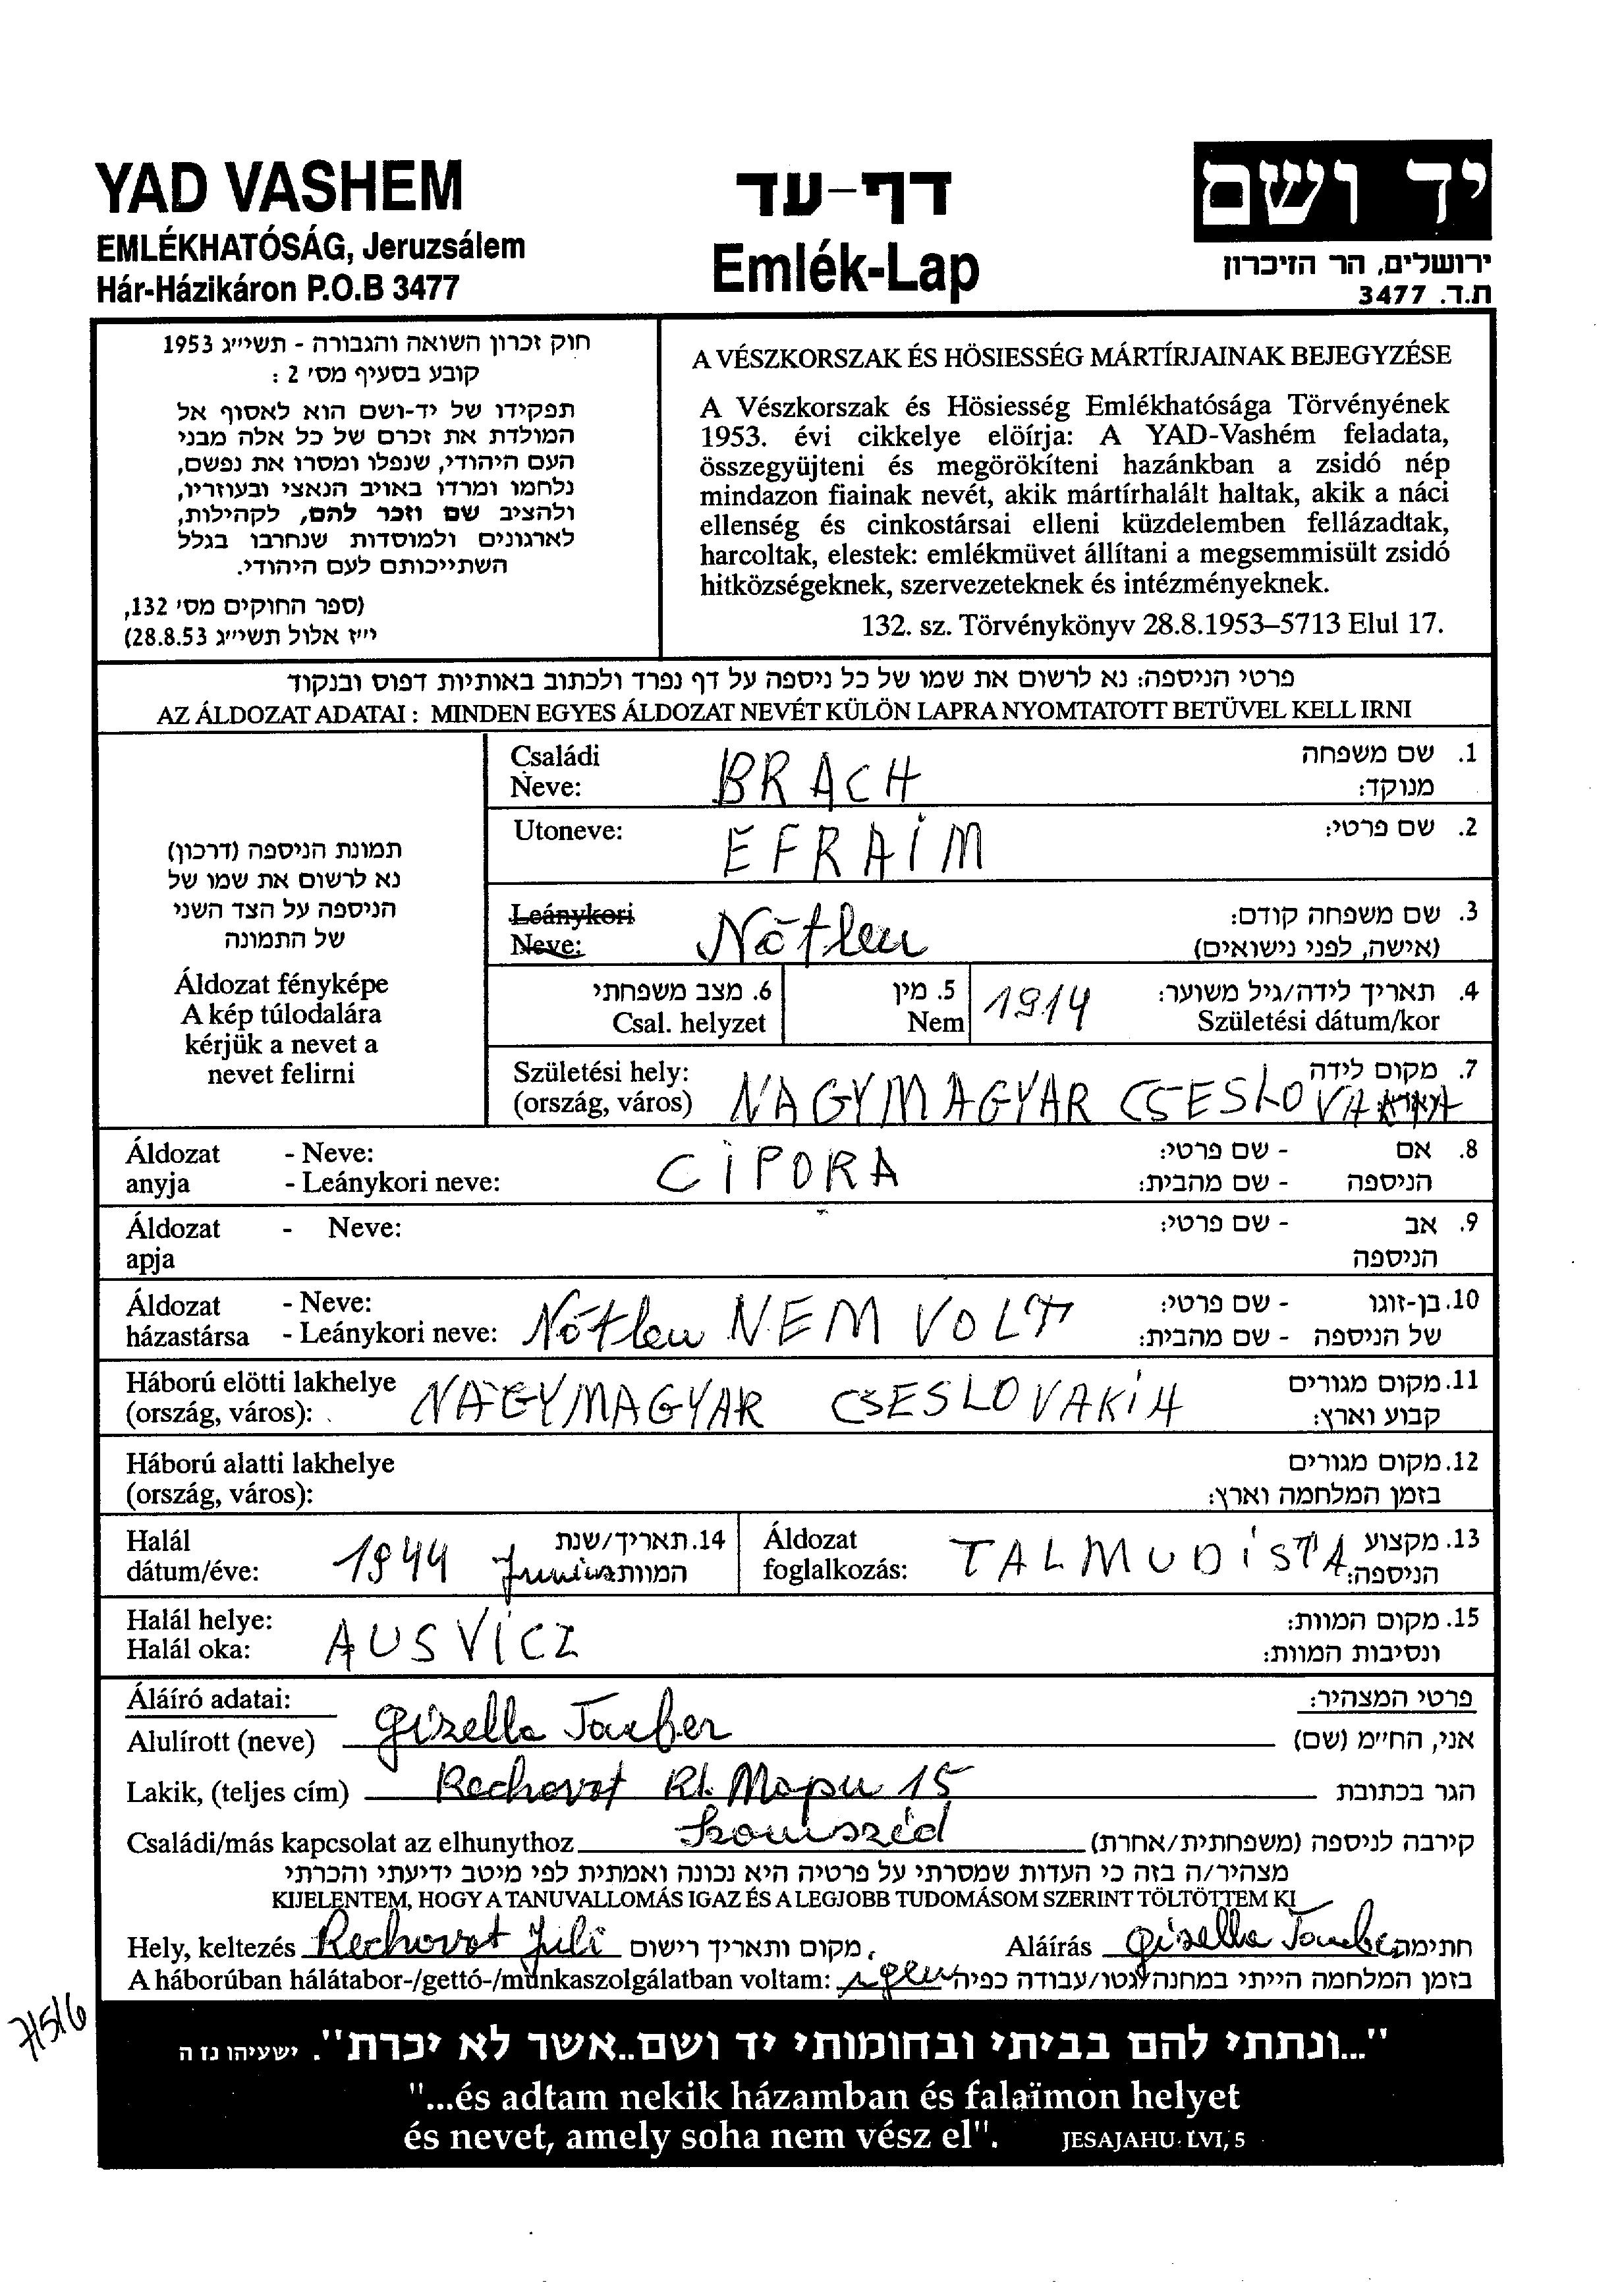 YAD VASHEM
EMLÉKHATÓSÁG, Jeruzsálem
Hár-Házikáron P.O.B 3477
דף-עד
Emlék-Lap
יד ושם
ירושלים, הר הזיכרון
ת.ד. 3477
חוק זכרון השואה והגבורה - תשי״ג 1953
קובע בסעיף מס׳ 2 :
תפקידו של יד-ושם הוא לאסוף אל
המולדת את זכרם של כל אלה מבני
העם היהודי, שנפלו ומסרו את נפשם,
נלחמו ומרדו באויב הנאצי ובעוזריו,
ולהציב שם וזכר להם, לקהילות,
לארגונים ולמוסדות שנחרבו בגלל
השתייכותם לעם היהודי.
(ספר החוקים מס׳ 132,
י״ז אלול תשי״ג 28.8.53)
A VÉSZKORSZAK ÉS HÖSIESSÉG MÁRTÍRJAINAK BEJEGYZÉSE
A Vészkorszak és Hösiesség Emlékhatósága Törvényének
1953. évi cikkelye elöírja: A YAD-Vashém feladata,
összegyüjteni és megörökíteni hazánkban a zsidó nép
mindazon fiainak nevét, akik mártírhalált haltak, akik a náci
ellenség és cinkostársai elleni küzdelemben fellázadtak,
harcoltak, elestek: emlékmüvet állítani a megsemmisült zsidó
hitközségeknek, szervezeteknek és intézményeknek.
132. sz. Törvénykönyv 28.8.1953–5713 Elul 17.
פרטי הניספה: נא לרשום את שמו של כל ניספה על דף נפרד ולכתוב באותיות דפוס ובנקוד
AZ ÁLDOZAT ADATAI : MINDEN EGYES ÁLDOZAT NEVÉT KÜLÖN LAPRA NYOMTATOTT BETÜVEL KELL IRNI
תמונת הניספה (דרכון)
נא לרשום את שמו של
הניספה על הצד השני
של התמונה
Áldozat fényképe
A kép túlodalára
kérjük a nevet a
nevet felirni
Családi
Neve: BRACH
1. שם משפחה
מנוקד:
Utoneve: EFRAIM 2. שם פרטי:
Leánykori
Neve: Nőtlen
3. שם משפחה קודם:
(אישה, לפני נישואים)
6. מצב משפחתי
Csal. helyzet
5. מין
Nem
1914
4. תאריך לידה/גיל משוער:
Születési dátum/kor
Születési hely:
(ország, város) NAGYMAGYAR CSESLOVAKIA
7. מקום לידה
Áldozat - Neve: CIPORA
anyja - Leánykori neve:
8. אם - שם פרטי:
הניספה - שם מהבית:
Áldozat - Neve:
apja
9. אב - שם פרטי:
הניספה
Áldozat - Neve:
házastársa - Leánykori neve: Nőtlen NEM VOLT
10. בן-זוגו - שם פרטי:
של הניספה - שם מהבית:
Háború elötti lakhelye
(ország, város): NAGYMAGYAR CSESLOVAKIA
11. מקום מגורים
קבוע וארץ:
Háború alatti lakhelye
(ország, város):
12. מקום מגורים
בזמן המלחמה וארץ:
Halál
dátum/éve: 1944 Junius
14. תאריך/שנת
המוות
Áldozat
foglalkozás: TALMUDISTA
13. מקצוע
הניספה:
Halál helye:
Halál oka: AUSVICZ
15. מקום המוות:
ונסיבות המוות:
Áláíró adatai: פרטי המצהיר:
Alulírott (neve) Gizella Tauber אני, הח״מ (שם)
Lakik, (teljes cím) Rechovot Rh. Mapu 15 הגר בכתובת
Családi/más kapcsolat az elhunythoz Szomszéd קירבה לניספה (משפחתית/אחרת)
מצהיר/ה בזה כי העדות שמסרתי על פרטיה היא נכונה ואמתית לפי מיטב ידיעתי והכרתי
KIJELENTEM, HOGY A TANUVALLOMÁS IGAZ ÉS A LEGJOBB TUDOMÁSOM SZERINT TÖLTÖTTEM KI
Hely, keltezés Rechovot Juli מקום ותאריך רישום, Aláírás Gizella Tauber חתימה
A háborúban hálátabor-/gettó-/munkaszolgálatban voltam: igen בזמן המלחמה הייתי במחנה/גטו/עבודה כפיה
7/5/6
"...ונתתי להם בביתי ובחומותי יד ושם..אשר לא יכרת". ישעיהו נז ה
"...és adtam nekik házamban és falaïmon helyet
és nevet, amely soha nem vész el". JESAJAHU: LVI, 5